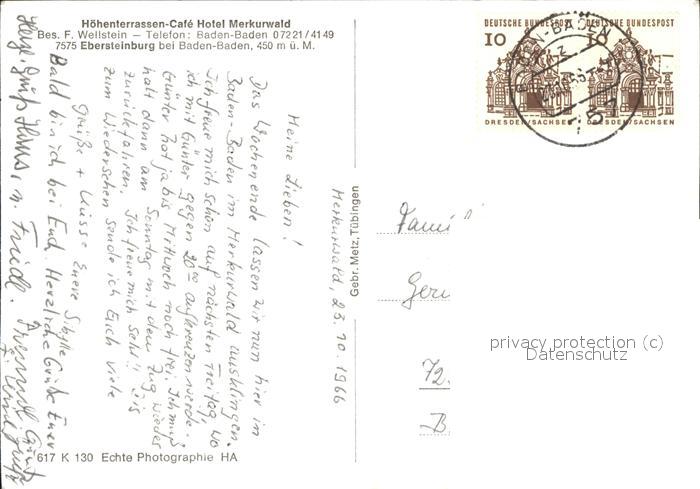 Höhenterrassen-Café Hotel Merkurwald
Bes. F. Wellstein — Telefon: Baden-Baden 07221/4149
7575 Ebersteinburg bei Baden-Baden, 450 m ü. M.
DEUTSCHE BUNDESPOST
10
DRESDEN/SACHSEN
DEUTSCHE BUNDESPOST
10
DRESDEN/SACHSEN
BADEN-BADEN
z
757
Merkurwald, 23.10.1966
Meine Lieben!
Das Wochenende lassen wir nun hier im
Baden-Baden im Merkurwald ausklingen.
Ich freue mich schon auf nächsten Freitag, wo
ich mit Günter gegen 20⁰⁰ aufkreuzen werde.
Günter hat ja bis Mittwoch noch frei. Ich muß
halt dann am Sonntag mit dem Zug wieder
zurückfahren. Ich freue mich sehr!! Bis
zum Wiedersehen sende ich Euch viele
Grüße + Küsse Eure Sibylle
Bald bin ich bei Euch. Herzliche Grüße Euer
Günter
Herzl. Grüße Hans u. Friedl.
Gebr. Metz, Tübingen
Fami
Geri
72.
B
617 K 130 Echte Photographie HA
privacy protection (c)
Datenschutz